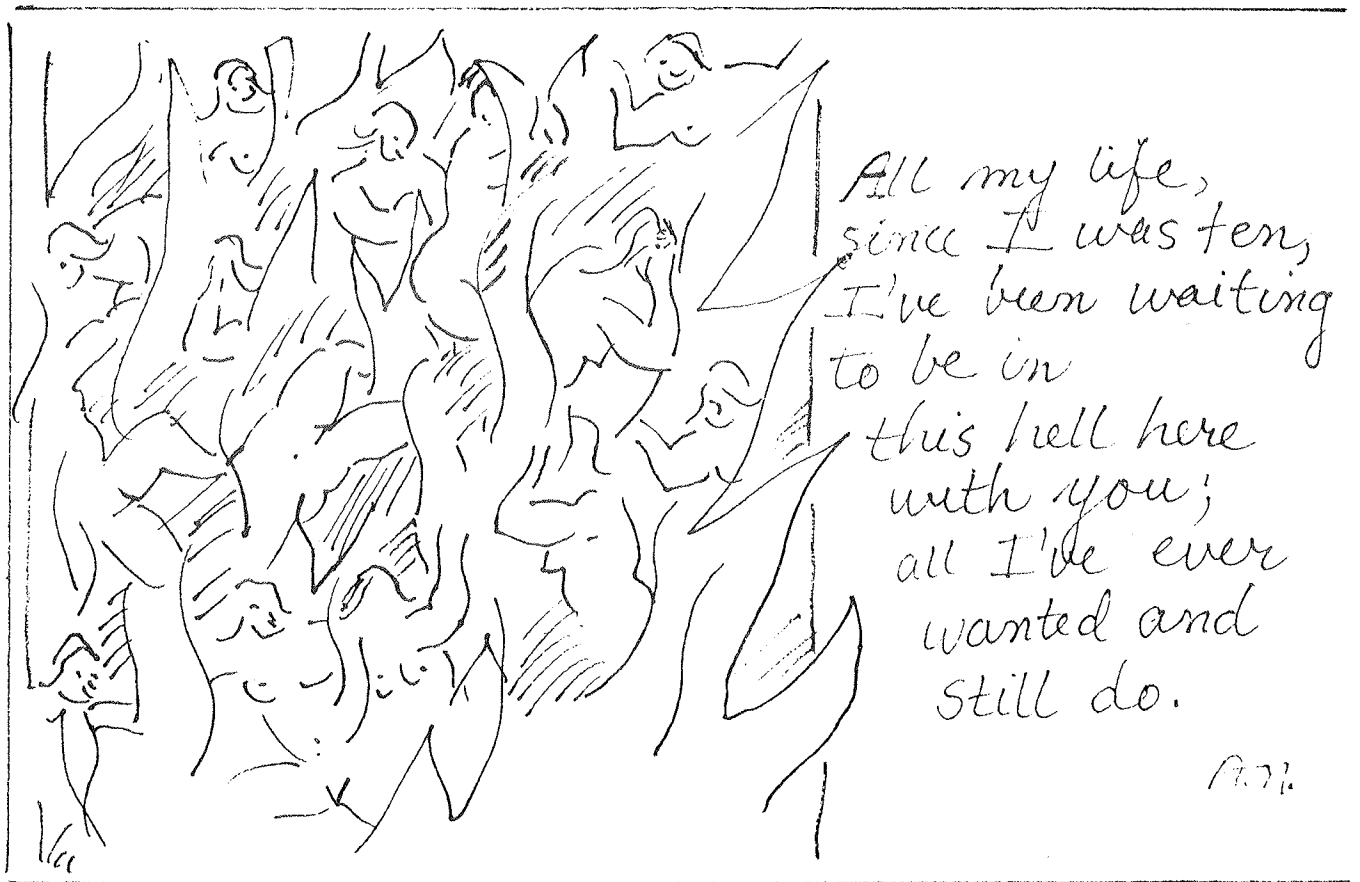 All my life,
since I was ten,
I've been waiting
to be in
this hell here
with you;
all I've ever
wanted and
still do.
A.N.